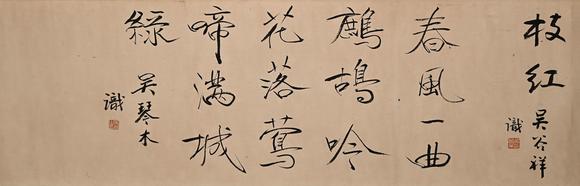 枝紅
吳谷祥
識
春風一曲
鷓鴣吟
花落鶯
啼滿城
綠
吳琴木
識